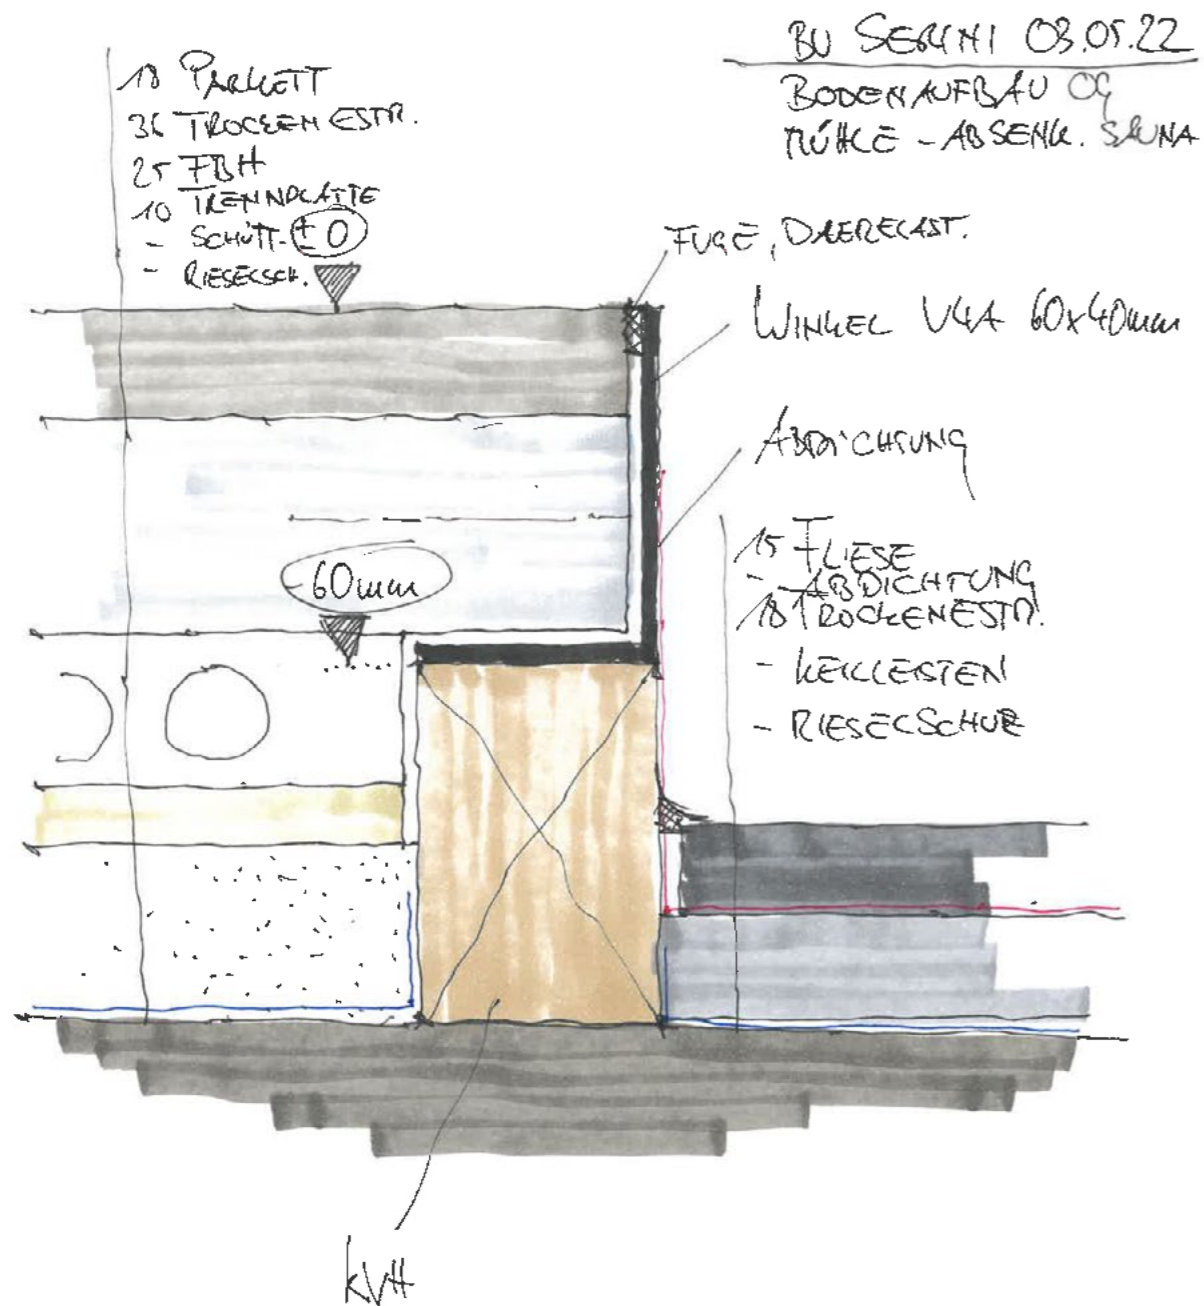 BV SERINI 03.05.22
BODENAUFBAU OG
MÜHLE - ABSENK. SAUNA
18 PARKETT
36 TROCKENESTR.
25 FBH
10 TRENNPLATTE
- SCHÜTT.
- RIESELSCH.
±0
FUGE, DAUERELAST.
WINKEL V4A 60x40mm
ABDICHTUNG
-60mm
15 FLIESE
- ABDICHTUNG
18 TROCKENESTR.
- KEILLEISTEN
- RIESELSCHUTZ
KVH